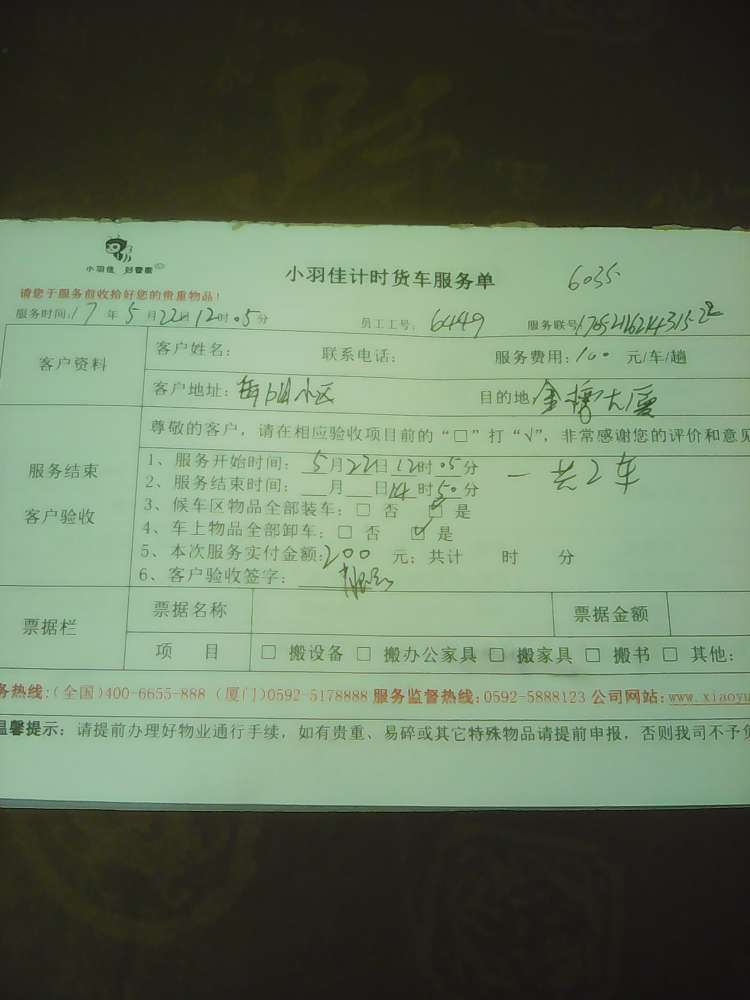 小羽佳 好管家
小羽佳计时货车服务单 6035
请您于服务前收拾好您的贵重物品！
服务时间：17年5月22日12时05分 员工工号：6449 服务联号
客户资料
客户姓名： 联系电话： 服务费用：100 元/车/趟
客户地址： 小区 目的地：金榜大厦
服务结束
客户验收
尊敬的客户，请在相应验收项目前的“□”打“√”，非常感谢您的评价和意见
1、服务开始时间：5月22日12时05分 一共2车
2、服务结束时间：___月___日14时50分
3、候车区物品全部装车：□ 否 ☑ 是
4、车上物品全部卸车：□ 否 ☑ 是
5、本次服务实付金额：200 元；共计 时 分
6、客户验收签字：
票据栏
票据名称 票据金额
项 目 □ 搬设备 □ 搬办公家具 □ 搬家具 □ 搬书 □ 其他：
务热线：(全国)400-6655-888 (厦门)0592-5178888 服务监督热线：0592-5888123 公司网站：www.xiaoyu
温馨提示：请提前办理好物业通行手续，如有贵重、易碎或其它特殊物品请提前申报，否则我司不予负